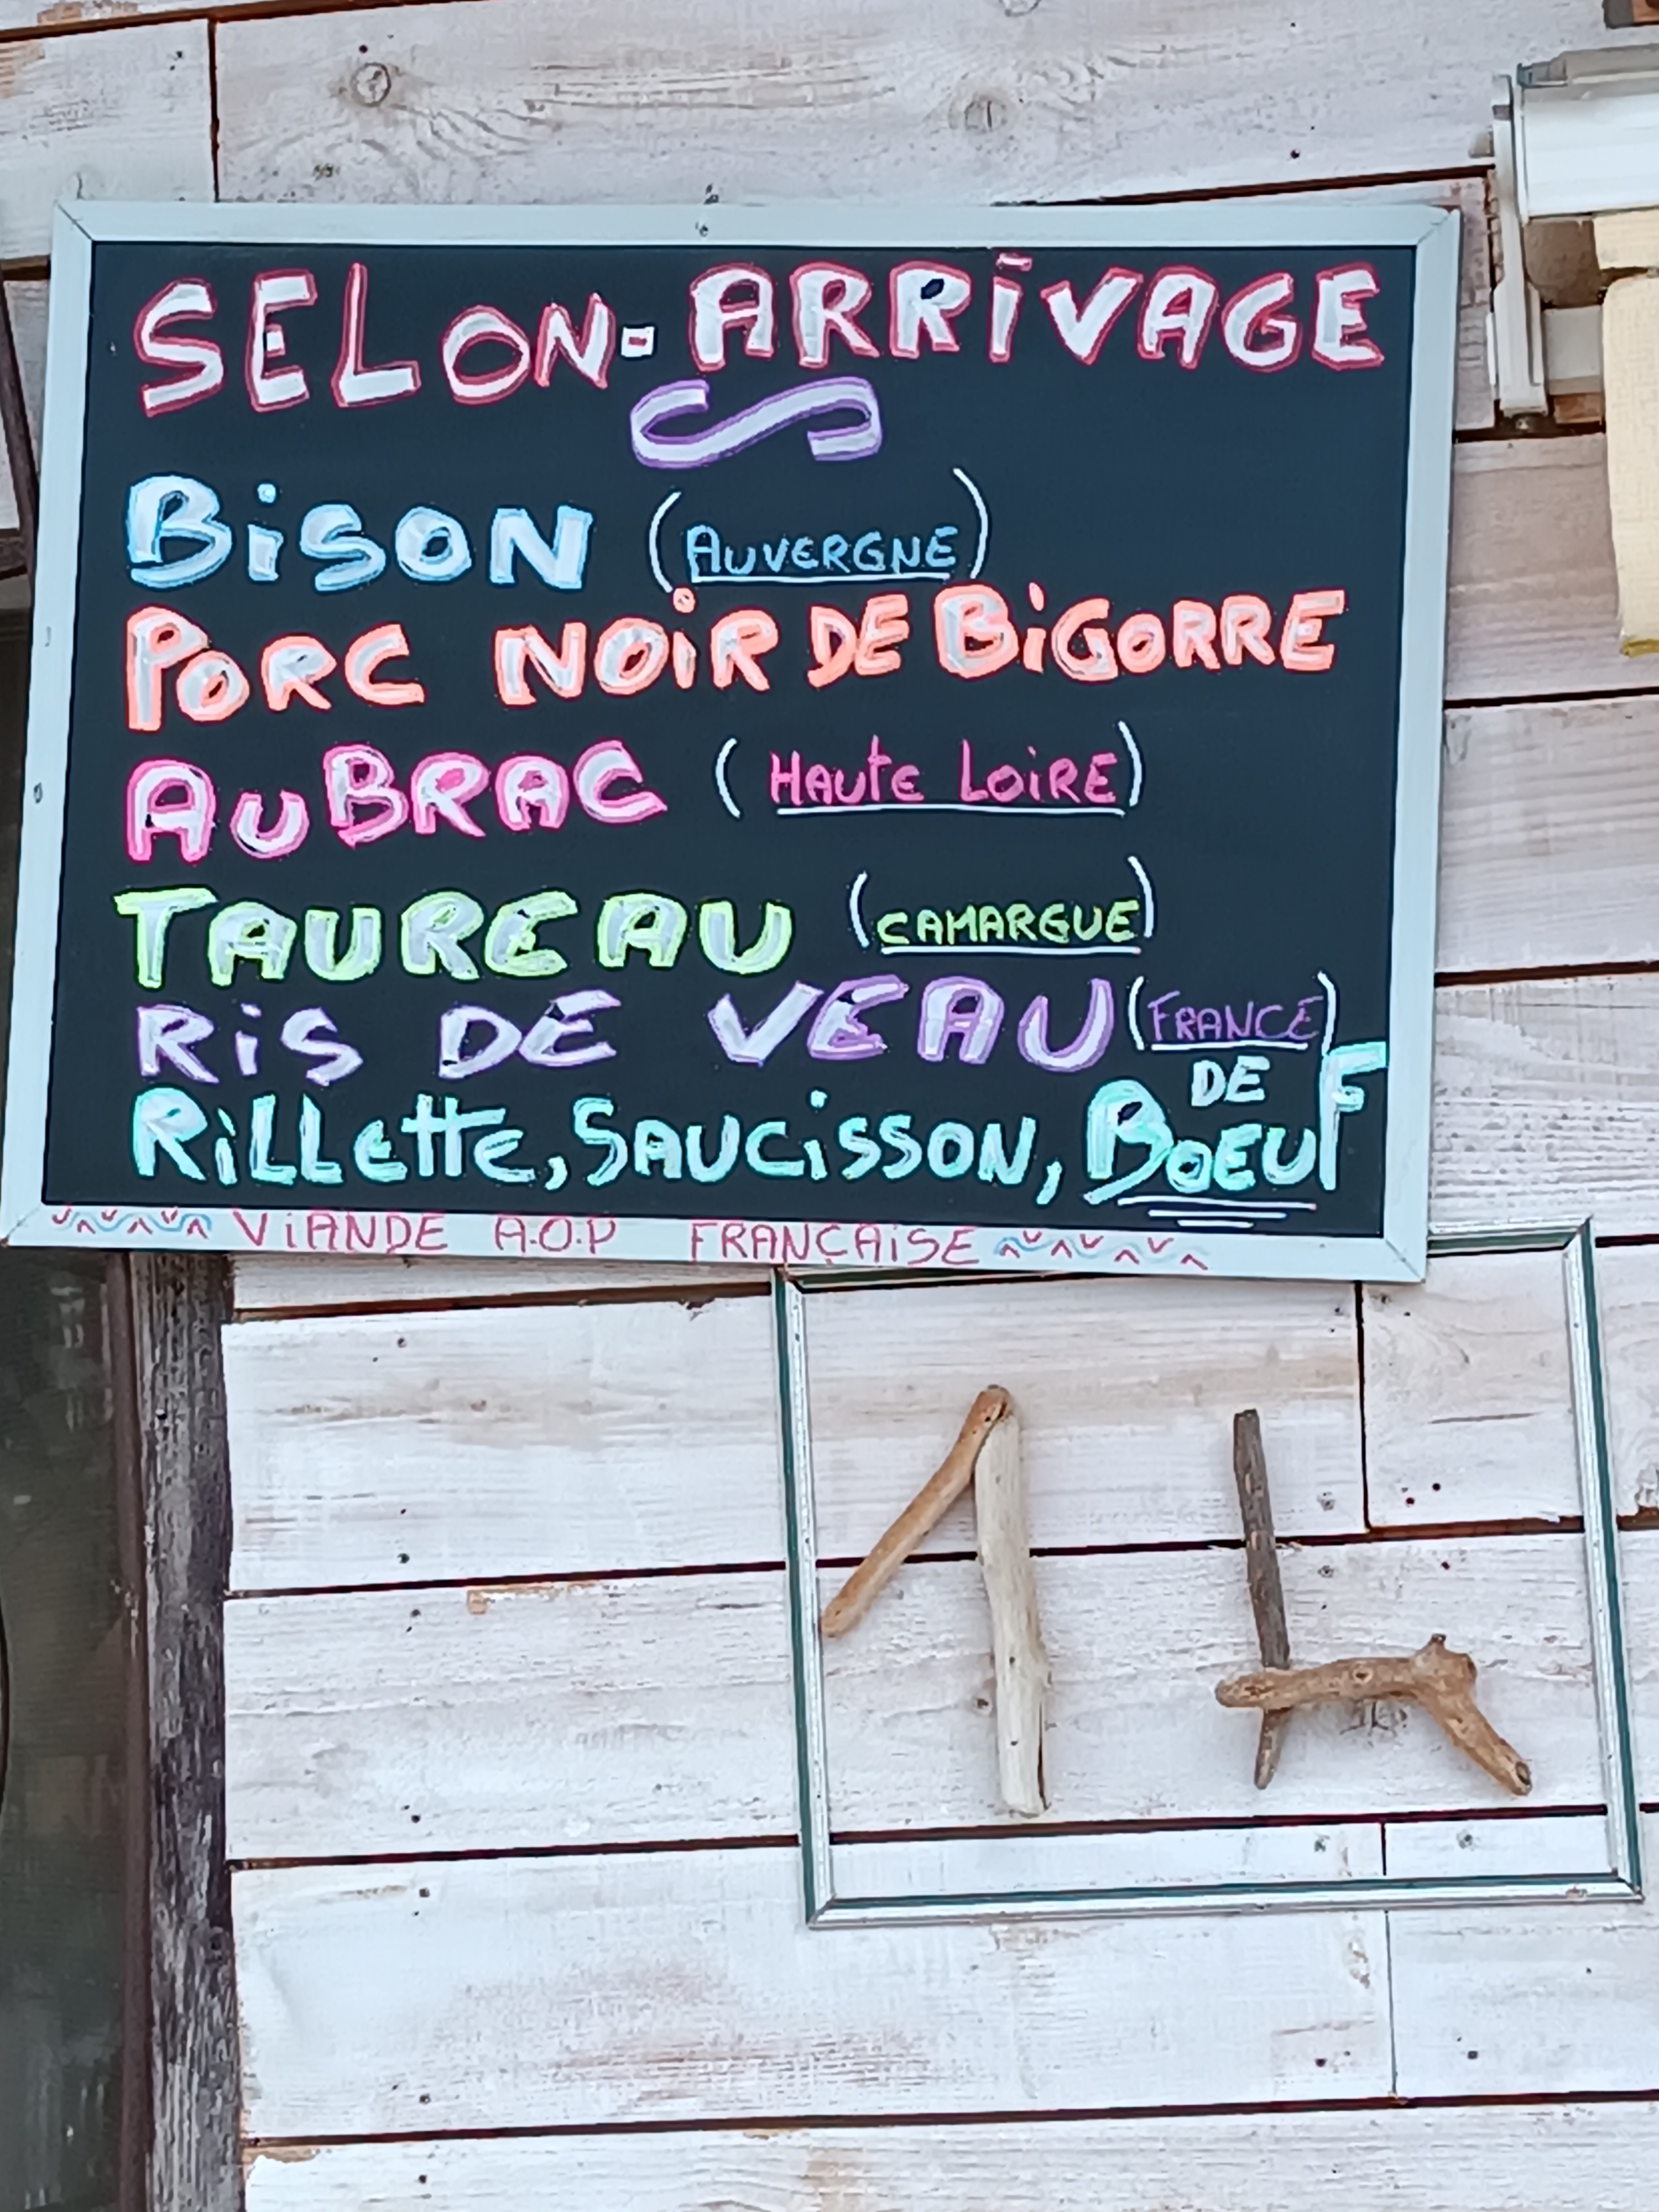 SELON-ARRIVAGE
BiSON (AUVERGNE)
PORC NOiR DE BiGORRE
AuBRAC (HAUtE LOiRE)
TAUREAU (CAMARGUE)
RiS DE VEAU (FRANCE)
RiLLettE, SAUCiSSON, DE BOEUF
ViANDE A.O.P FRANÇAiSE
14